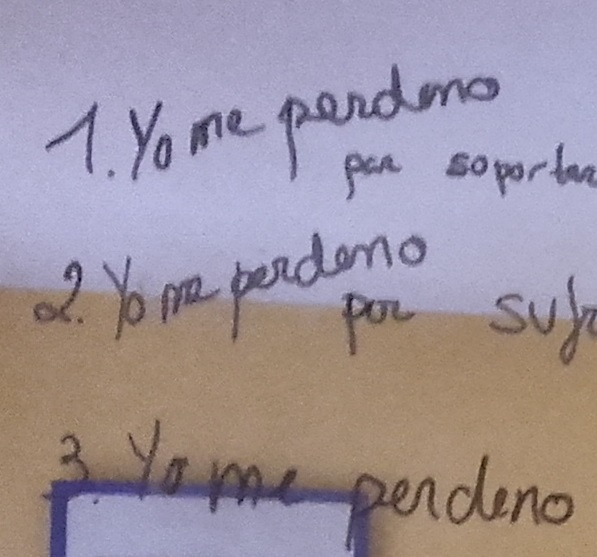 1. Yo me perdono
por soportar
2. Yo me perdono
por sufr
3. Yo me perdono